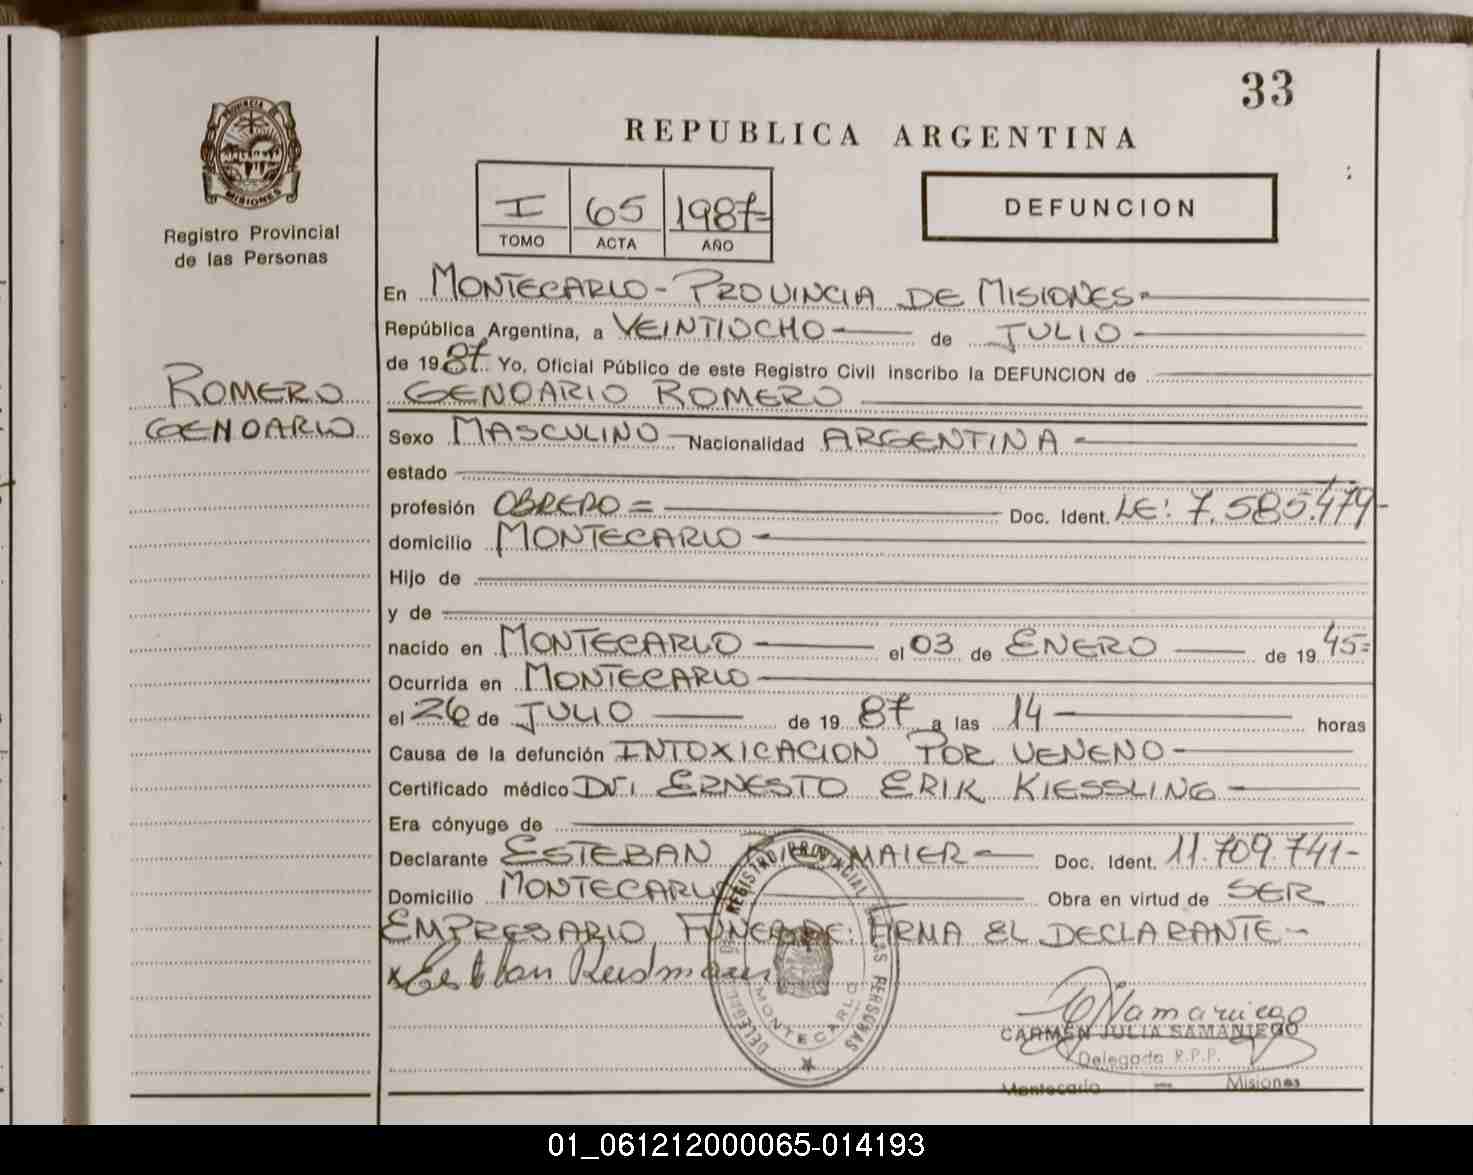 33
REPUBLICA ARGENTINA
PROVINCIA DE
MISIONES
Registro Provincial
de las Personas
I 65 1987=
TOMO ACTA AÑO
DEFUNCION
En MONTECARLO - PROVINCIA DE MISIONES-
República Argentina, a VEINTIOCHO de JULIO
de 1987. Yo, Oficial Público de este Registro Civil inscribo la DEFUNCION de
ROMERO
GENOARIO
GENOARIO ROMERO
Sexo MASCULINO Nacionalidad ARGENTINA -
estado
profesión OBRERO = Doc. Ident. LE: 7.585.479-
domicilio MONTECARLO -
Hijo de
y de
nacido en MONTECARLO el 03 de ENERO de 1945=
Ocurrida en MONTECARLO
el 26 de JULIO de 1987 a las 14 horas
Causa de la defunción INTOXICACION POR VENENO
Certificado médico Dr: ERNESTO ERIK KIESSLING
Era cónyuge de
Declarante ESTEBAN MAIER Doc. Ident. 11.709.741-
Domicilio MONTECARLO Obra en virtud de SER
EMPRESARIO FUNEBRE: FIRMA EL DECLARANTE -
x Esteban
REGISTRO PROVINCIAL DE LAS PERSONAS
MONTECARLO
CARMEN JULIA SAMANIEGO
Delegada R.P.P.
Montecarlo - Misiones
01_061212000065-014193